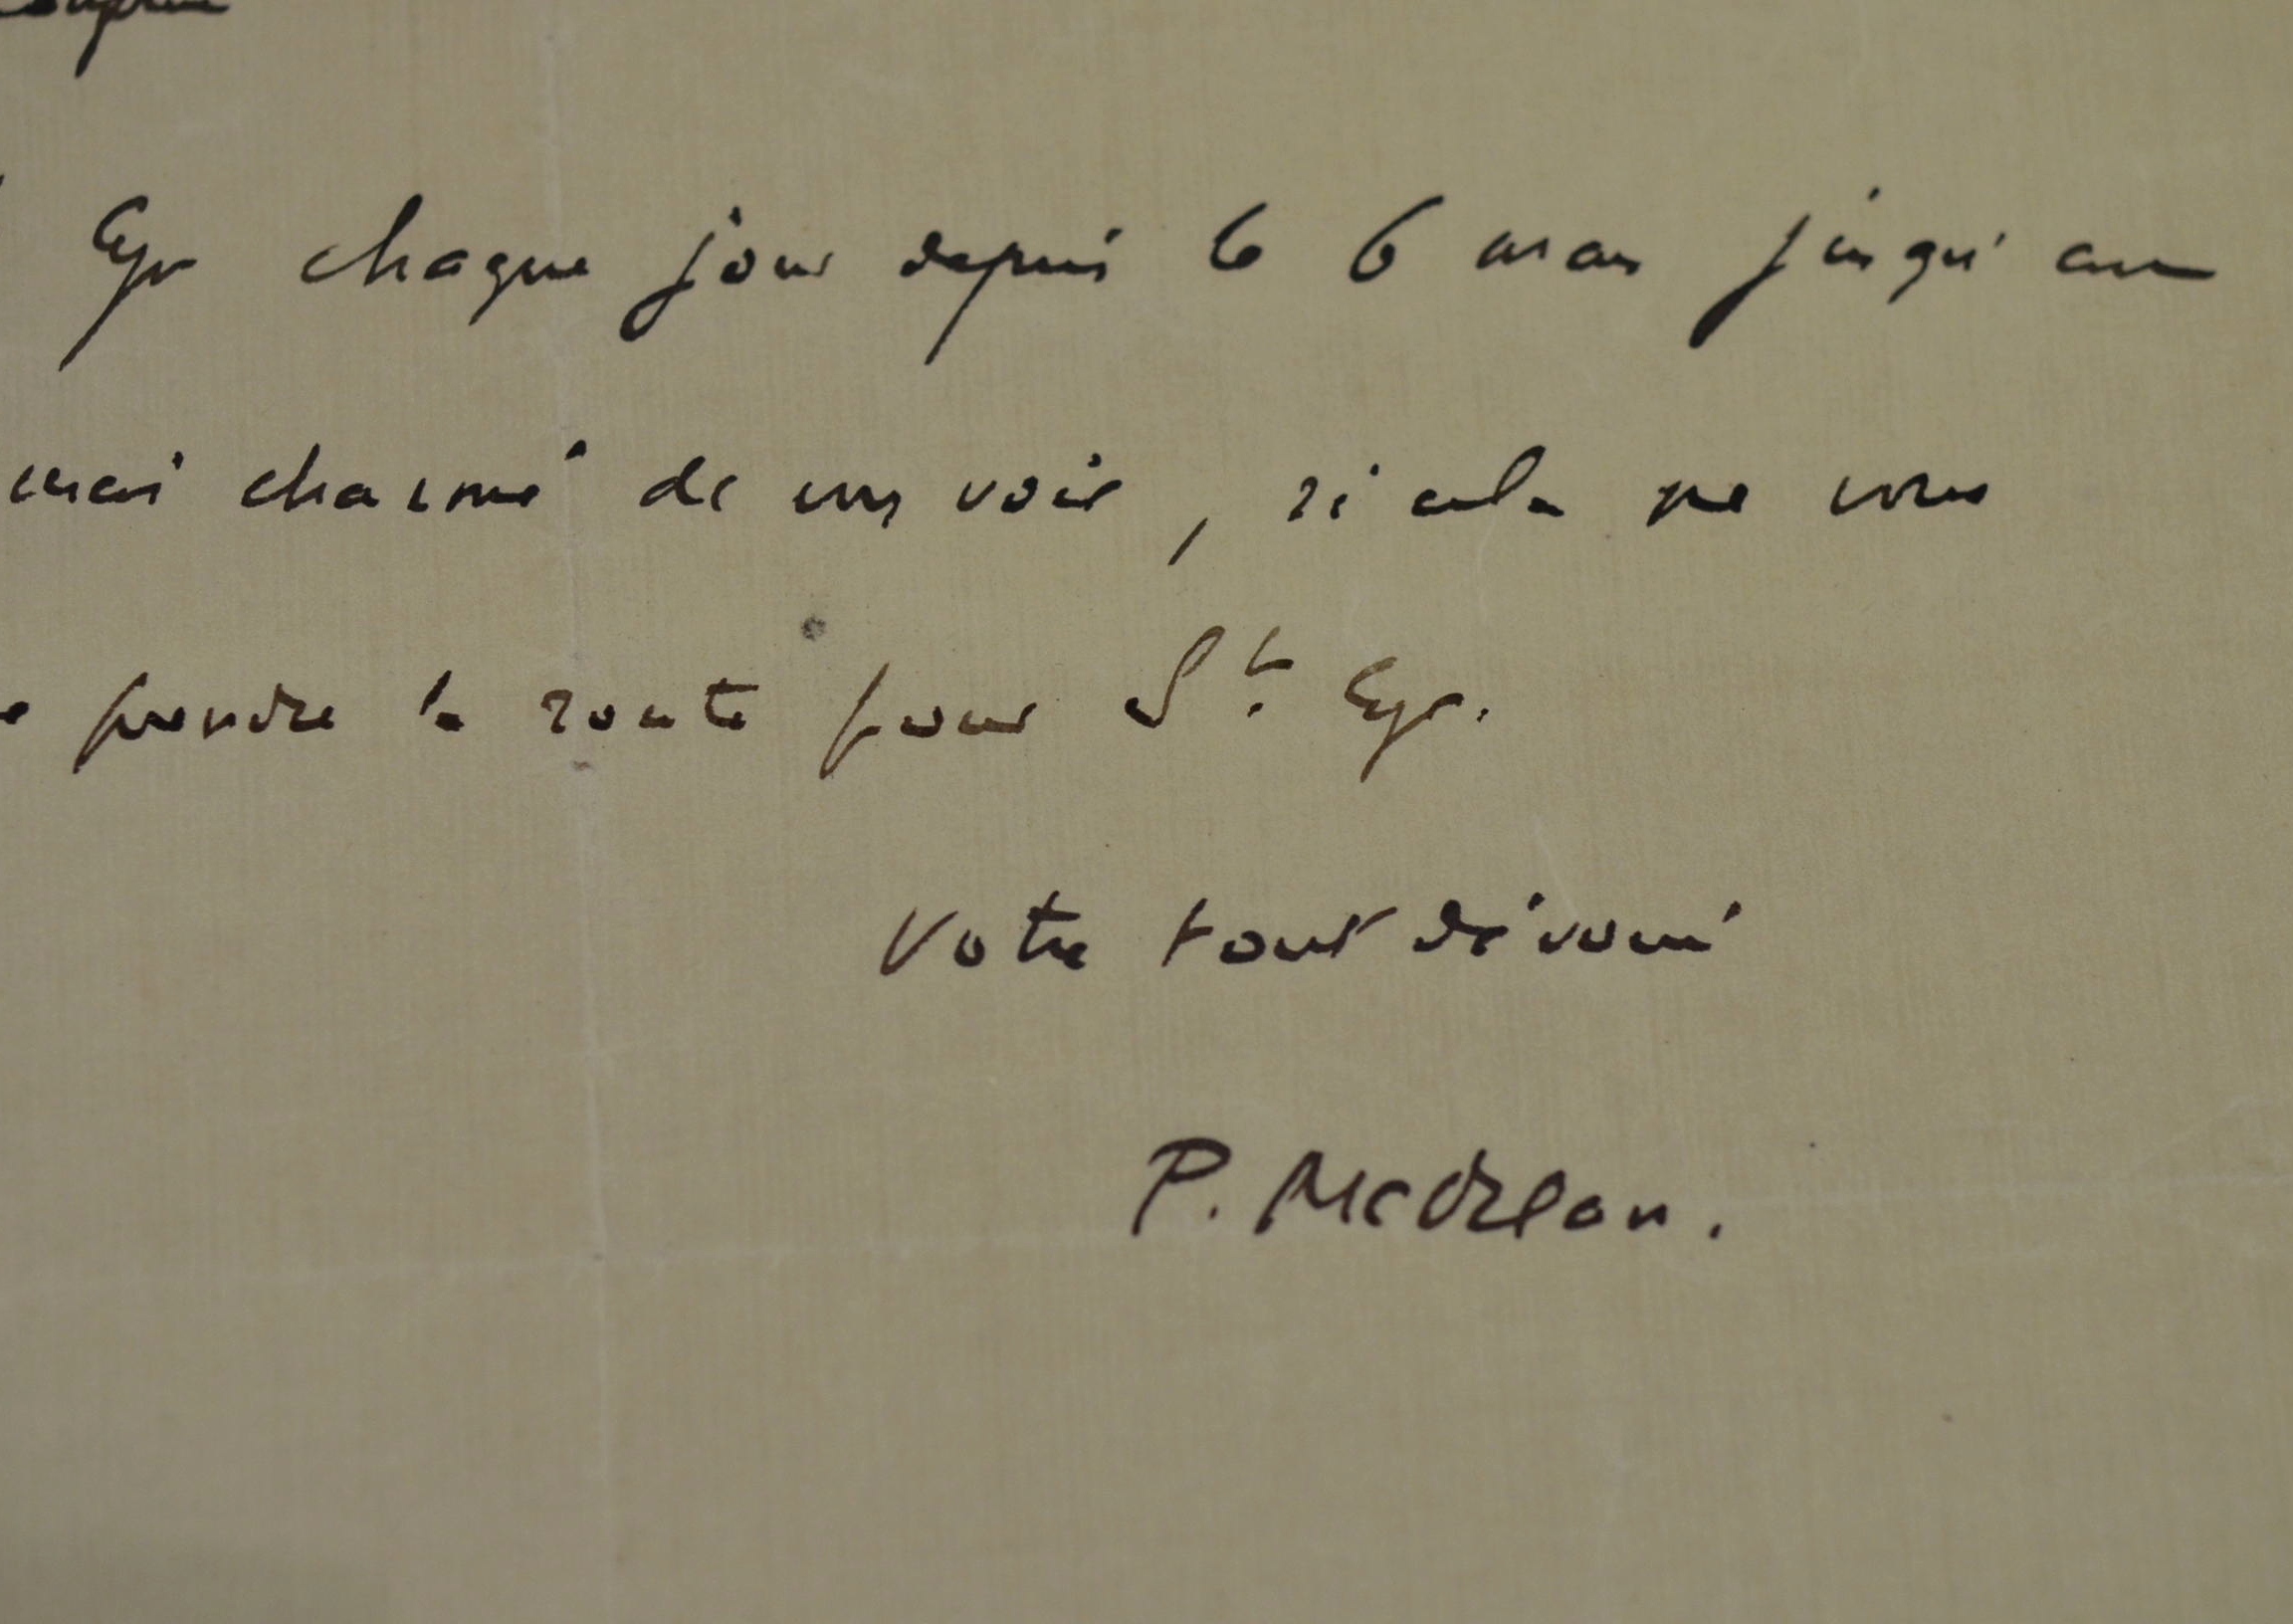 Cyr chaque jour depuis le 6 mars jusqu'au
serai charmé de vous voir, si cela ne vous
prendre la route pour St. Cyr.
Votre tout dévoué
P. MacOrlan.